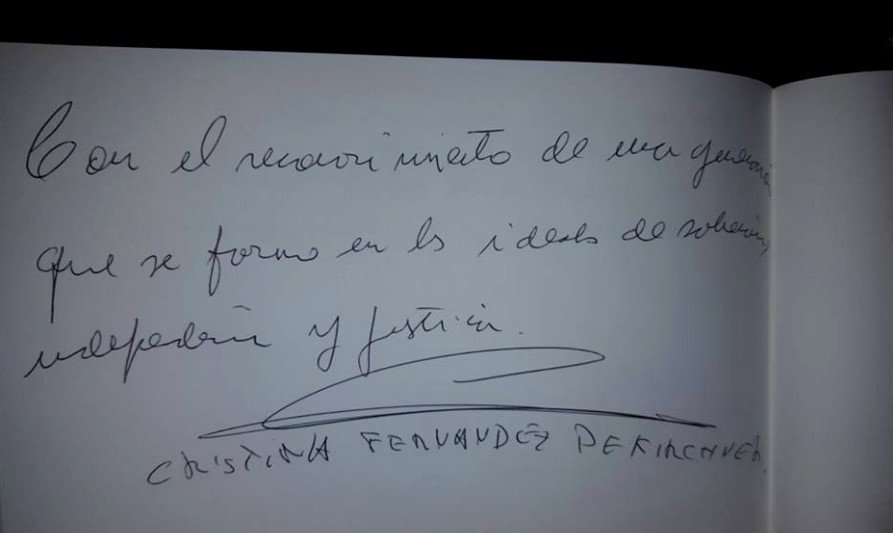 Con el reconocimiento de una generación
que se formo en los ideales de soberanía,
independencia y justicia.
CRISTINA FERNANDEZ DE KIRCHNER.